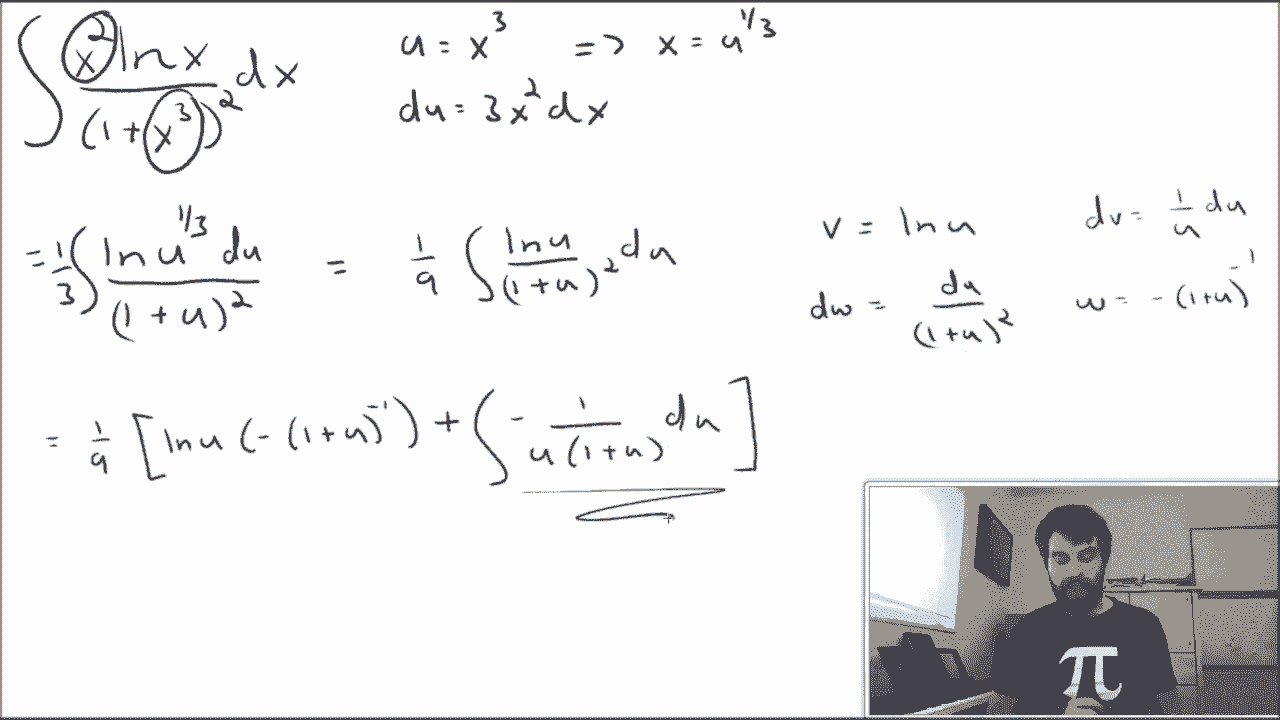 ∫ x² ln x / (1 + x³)² dx    u = x³ => x = u^{1/3}
du = 3x² dx
= 1/3 ∫ ln u^{1/3} du / (1 + u)² = 1/9 ∫ ln u / (1 + u)² du    v = ln u    dv = 1/u du
dw = du / (1+u)²    w = -(1+u)^{-1}
= 1/9 [ ln u (-(1+u)^{-1}) + ∫ - 1 / u(1+u) du ]
π